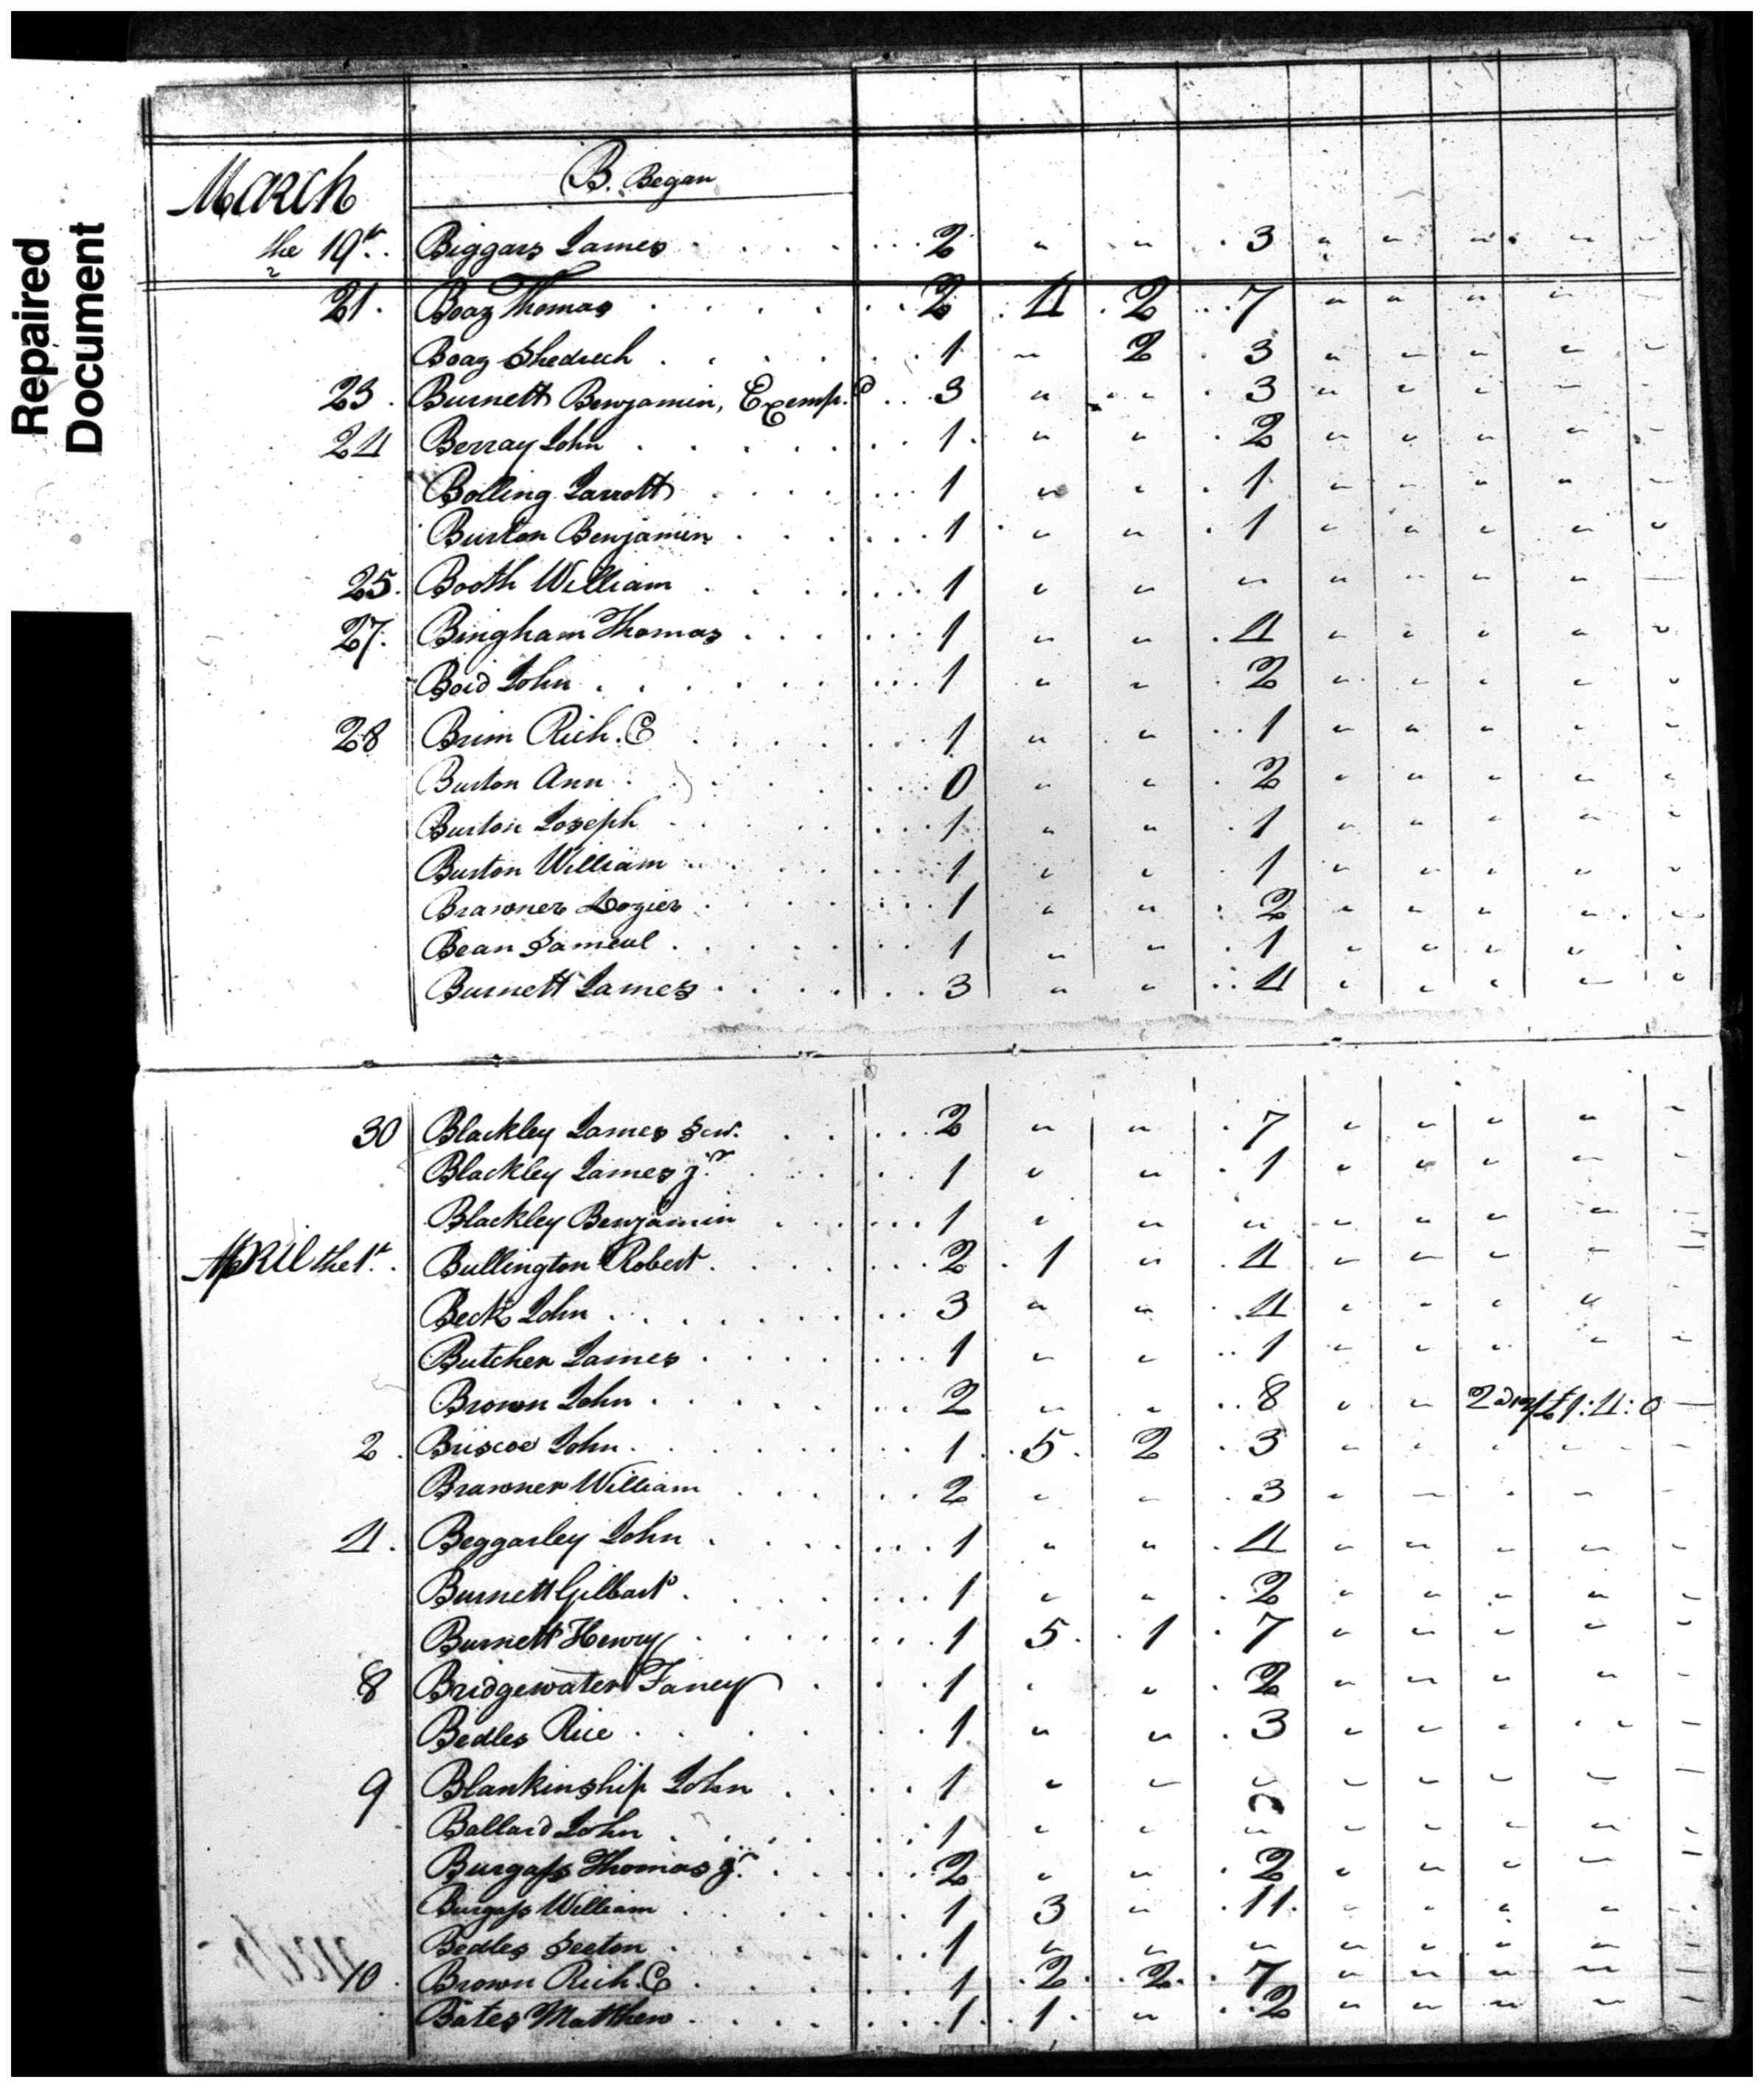 Repaired
Document
March B. Began
the 19th. Biggars James 2 " " 3 " " " " "
21. Boaz Thomas 2 4 2 7 " " " " "
Boaz Shedrech 1 " 2 3 " " " " "
23. Burnett Benjamin, Exemp.d 3 " " 3 " " " " "
24 Berray John 1 " " 2 " " " " "
Bolling Jarrott 1 " " 1 " " " " "
Burton Benjamin 1 " " 1 " " " " "
25. Booth William 1 " " " " " " " "
27. Bingham Thomas 1 " " 4 " " " " "
Boid John 1 " " 2 " " " " "
28 Brim Rich.d 1 " " 1 " " " " "
Burton Ann 0 " " 2 " " " " "
Burton Joseph 1 " " 1 " " " " "
Burton William 1 " " 1 " " " " "
Brawner Dozier 1 " " 2 " " " " "
Bean Sameul 1 " " 1 " " " " "
Burnett James 3 " " 4 " " " " "
30 Blackley James Sen. 2 " " 7 " " " " "
Blackley James jr. 1 " " 1 " " " " "
Blackley Benjamin 1 " " " " " " " "
April the 1st. Bullington Robert 2 1 " 4 " " " " "
Beck John 3 " " 4 " " " " "
Butcher James 1 " " 1 " " " " "
Brown John 2 " " 8 " " 2 £1:4:0 "
2. Briscoe John 1 5 2 3 " " " " "
Brawner William 2 " " 3 " " " " "
4. Beggarley John 1 " " 4 " " " " "
Burnett Gilbart 1 " " 2 " " " " "
Burnett Henry 1 5 1 7 " " " " "
8 Bridgewater Faney 1 " " 2 " " " " "
Bedles Rice 1 " " 3 " " " " "
9 Blankinship John 1 " " " " " " " "
Ballard John 1 " " " " " " " "
Burgass Thomas jr. 2 " " 2 " " " " "
Burgass William 1 3 " 11 " " " " "
Bedles Seeton 1 " " " " " " " "
10. Brown Rich.d 1 2 2 7 " " " " "
Bates Matthew 1 1 " 2 " " " " "